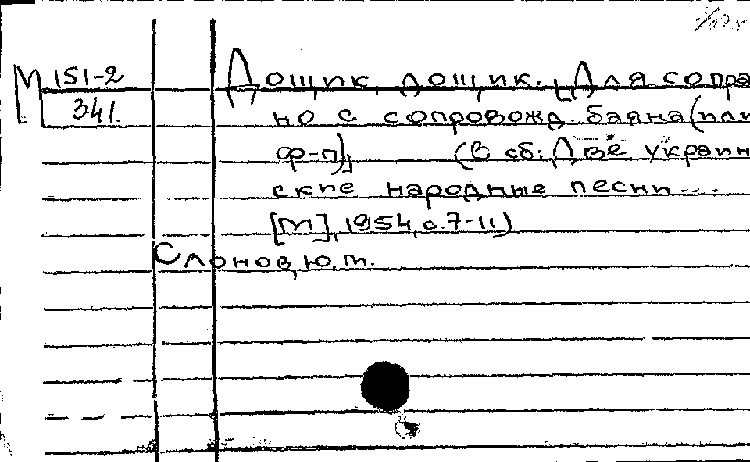 М 151-2
341.
Дощик, дощик. [Для сопра
но с сопровожд. баяна (или
ф-п)], (В сб: Две украин
ские народные песни...
[М], 1954, с.7-11)
Слонов, Ю.М.